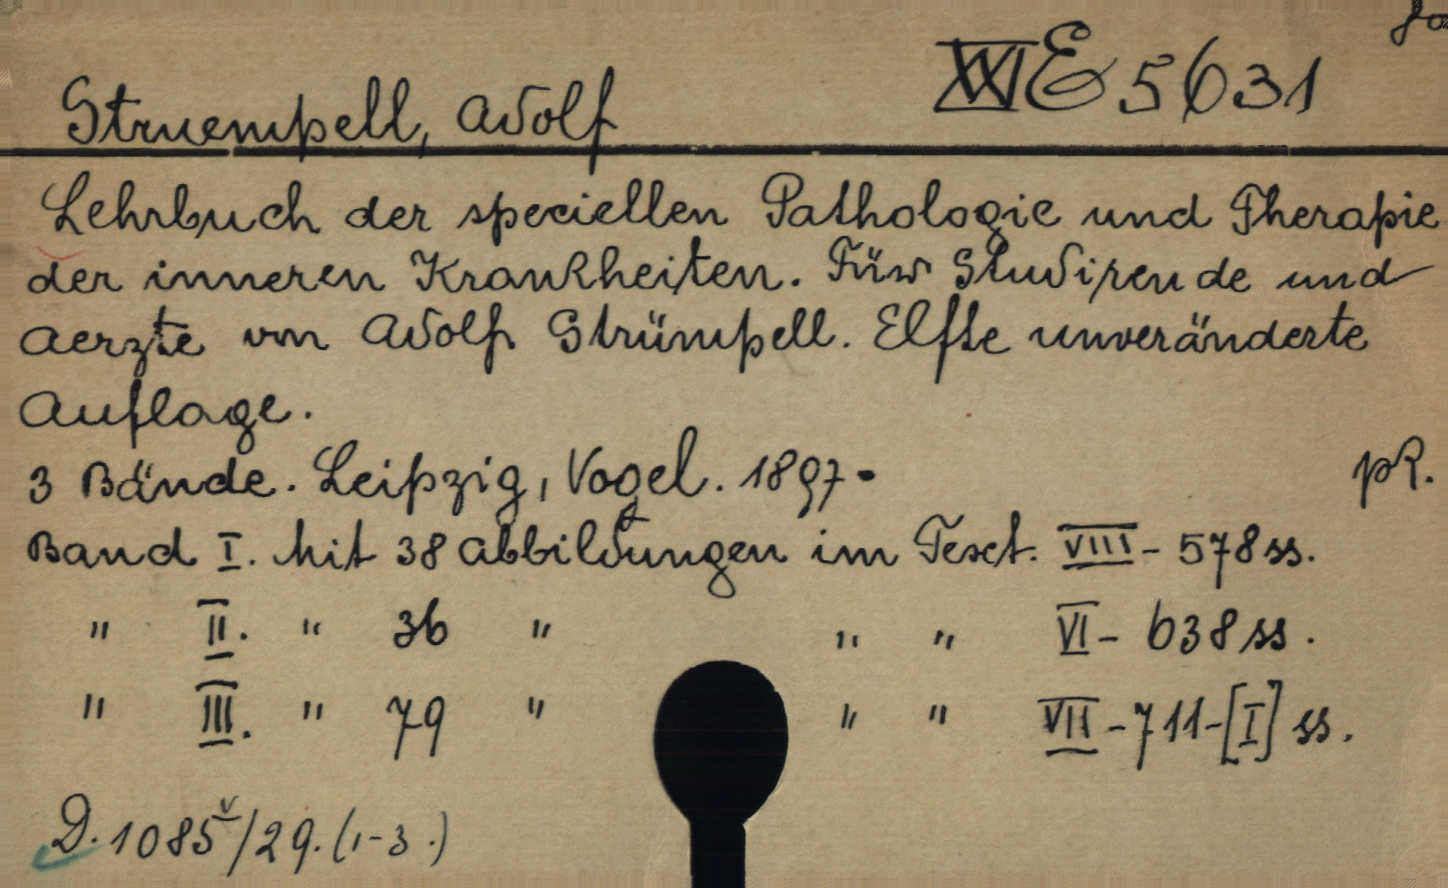 XXI E 5631
Struempell, Adolf
Lehrbuch der speciellen Pathologie und Therapie
der inneren Krankheiten. Für Studirende und
Aerzte von Adolf Strümpell. Elfte unveränderte
Auflage.
3 Bände. Leipzig, Vogel. 1897.
pR.
Band I. Mit 38 Abbildungen im Text. VIII - 578 ss.
" II. " 36 " " " VI - 638 ss.
" III. " 79 " " " VII - 711 - [I] ss.
D. 1085 V/29. (1-3.)